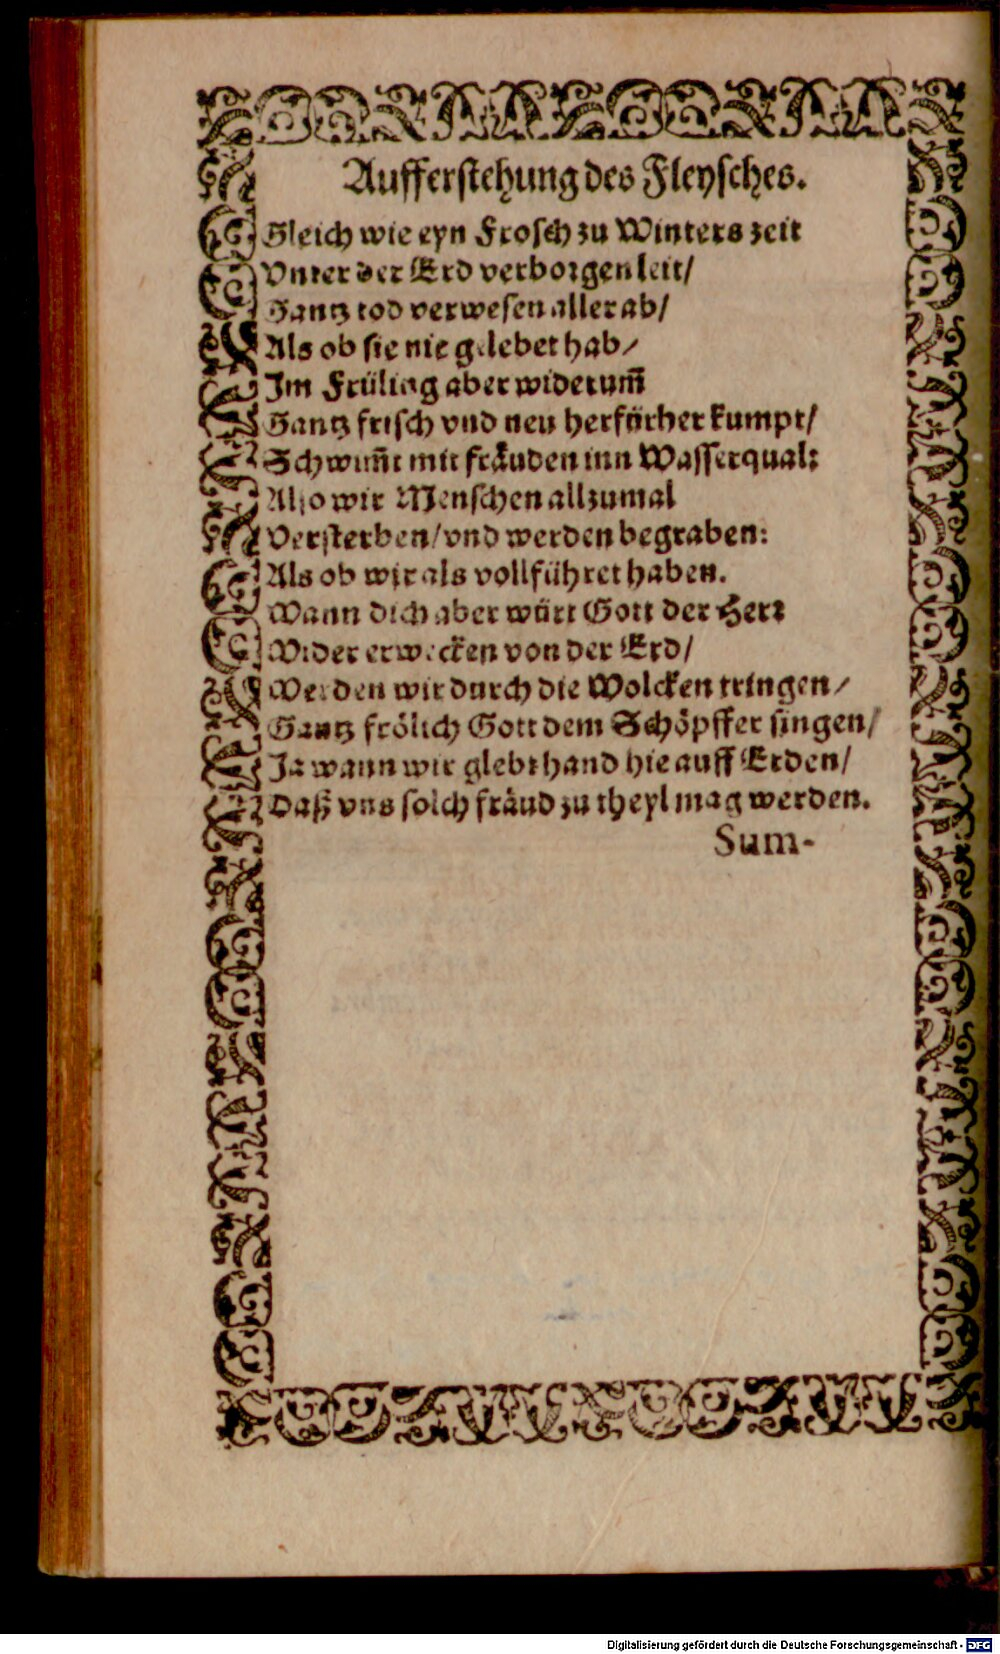 Aufferstehung des Fleysches.
Gleich wie eyn Frosch zu Winters zeit
Vnter der Erd verborgen leit/
Gantz tod verwesen aller ab/
Als ob sie nie gelebet hab/
Im Früling aber widerum̃
Gantz frisch vnd neu herfürher kumpt/
Schwim̃t mit fräuden inn Wasserqual:
Also wir Menschen allzumal
Versterben/vnd werden begraben:
Als ob wir als vollführet haben.
Wann dich aber würt Gott der Herr
Wider erwecken von der Erd/
Werden wir durch die Wolcken tringen/
Gantz frölich Gott dem Schöpffer singen/
Ja wann wir glebt hand hie auff Erden/
Daß vns solch fräud zu theyl mag werden.
Sum-
Digitalisierung gefördert durch die Deutsche Forschungsgemeinschaft - DFG